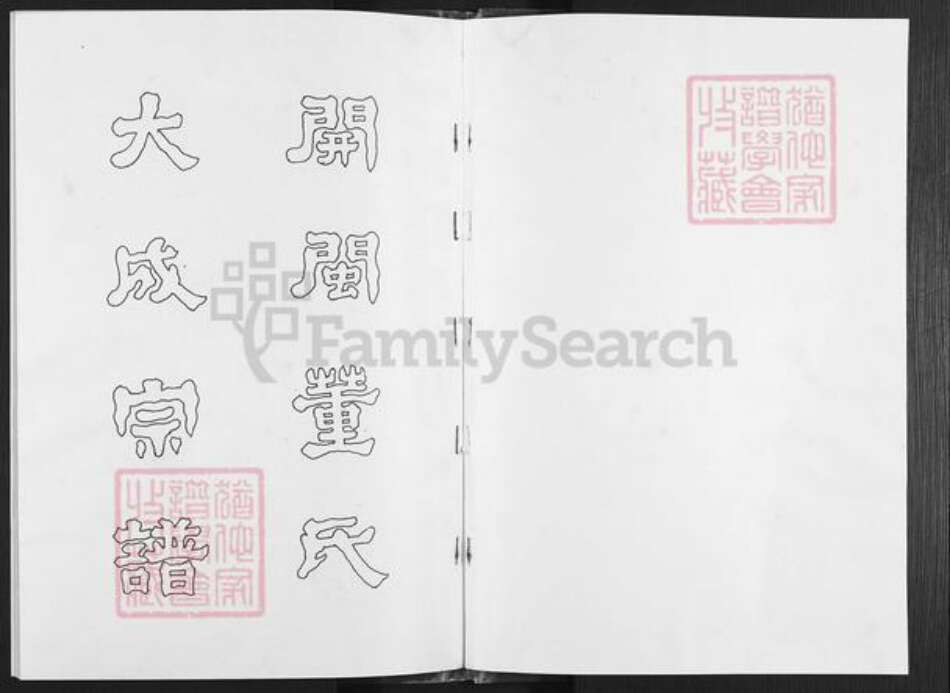 開閩董氏
大成宗譜
猶他家
譜學會
收藏
猶他家
譜學會
收藏
FamilySearch